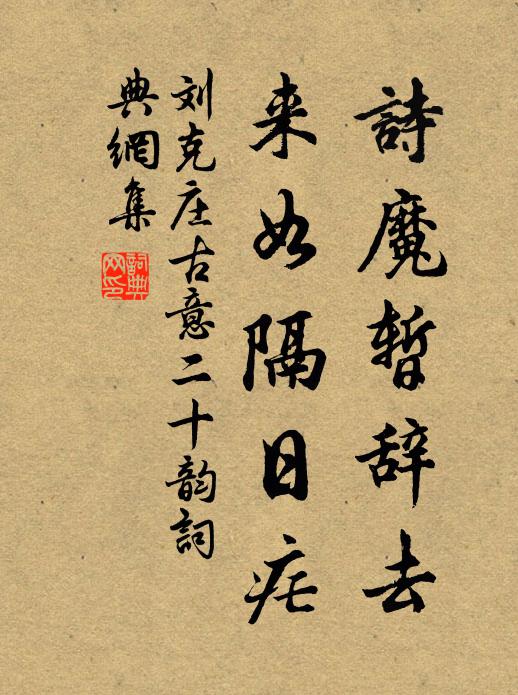 詩魔暫辞去
来如隔日疟
刘克庄古意二十韵詞
典網集
詞典
网印